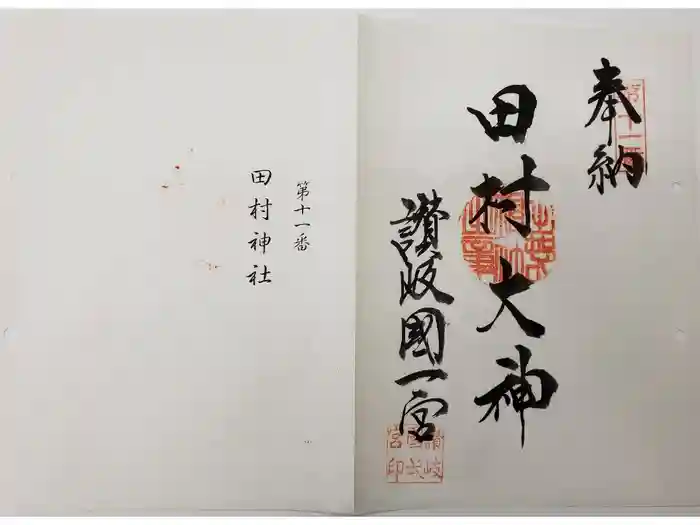 奉納
第十一番
田村大神
讃岐國一宮
讃岐國一宮印
第十一番
田村神社